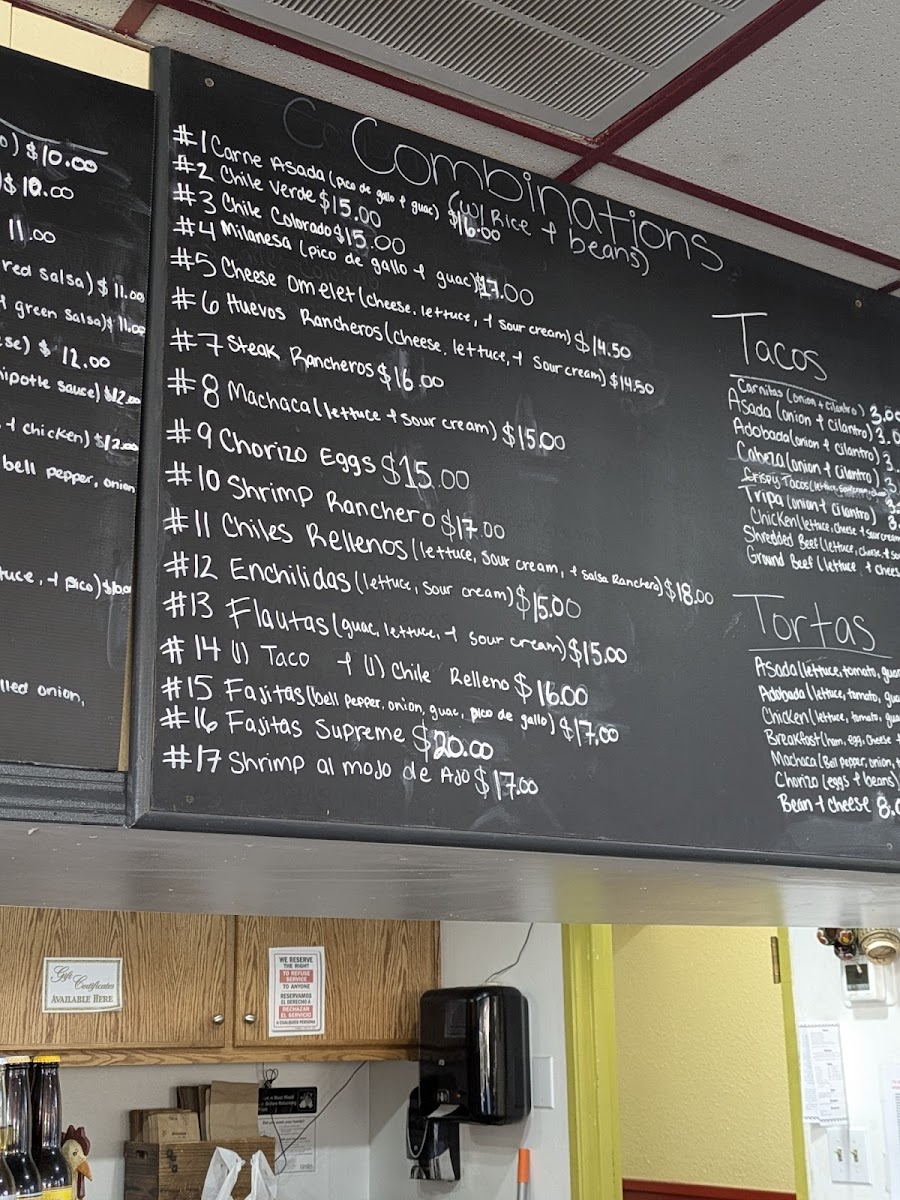 $10.00
$10.00
11.00
red salsa) $11.00
green salsa) $11.00
$12.00
sauce) $12.00
+ chicken) $12.00
bell pepper, onion
+ pico)
onion,
Combinations
(w/ Rice + beans)
#1 Carne Asada (pico de gallo + guac) $16.00
#2 Chile Verde $15.00
#3 Chile Colorado $15.00
#4 Milanesa (pico de gallo + guac) $17.00
#5 Cheese Omelet (cheese, lettuce, + sour cream) $14.50
#6 Huevos Rancheros (cheese, lettuce, + sour cream) $14.50
#7 Steak Rancheros $16.00
#8 Machaca (lettuce + sour cream) $15.00
#9 Chorizo Eggs $15.00
#10 Shrimp Ranchero $17.00
#11 Chiles Rellenos (lettuce, sour cream, + salsa Ranchera) $18.00
#12 Enchilidas (lettuce, sour cream) $15.00
#13 Flautas (guac, lettuce, + sour cream) $15.00
#14 (1) Taco + (1) Chile Relleno $16.00
#15 Fajitas (bell pepper, onion, guac, pico de gallo) $17.00
#16 Fajitas Supreme $20.00
#17 Shrimp al mojo de Ajo $17.00
Tacos
Carnitas (onion + cilantro) 3.00
Asada (onion + cilantro) 3.0
Adobada (onion + cilantro) 3.
Cabeza (onion + cilantro) 3.
Crispy Tacos (lettuce, sour cream,
Tripa (onion + cilantro) 3.
Chicken (lettuce, cheese + sour cream
Shredded Beef (lettuce, cheese, +
Ground Beef (lettuce + chees
Tortas
Asada (lettuce, tomato, guac
Adobada (lettuce, tomato, gua
Chicken (lettuce, tomato, gua
Breakfast (ham, egg, cheese +
Machaca (Bell pepper, onion,
Chorizo (eggs + beans)
Bean + cheese 8.0
Gift Certificates
AVAILABLE HERE
WE RESERVE
THE RIGHT
TO REFUSE
SERVICE
TO ANYONE
RESERVAMOS
EL DERECHO A
RECHAZAR
EL SERVICIO
A CUALQUIER PERSONA